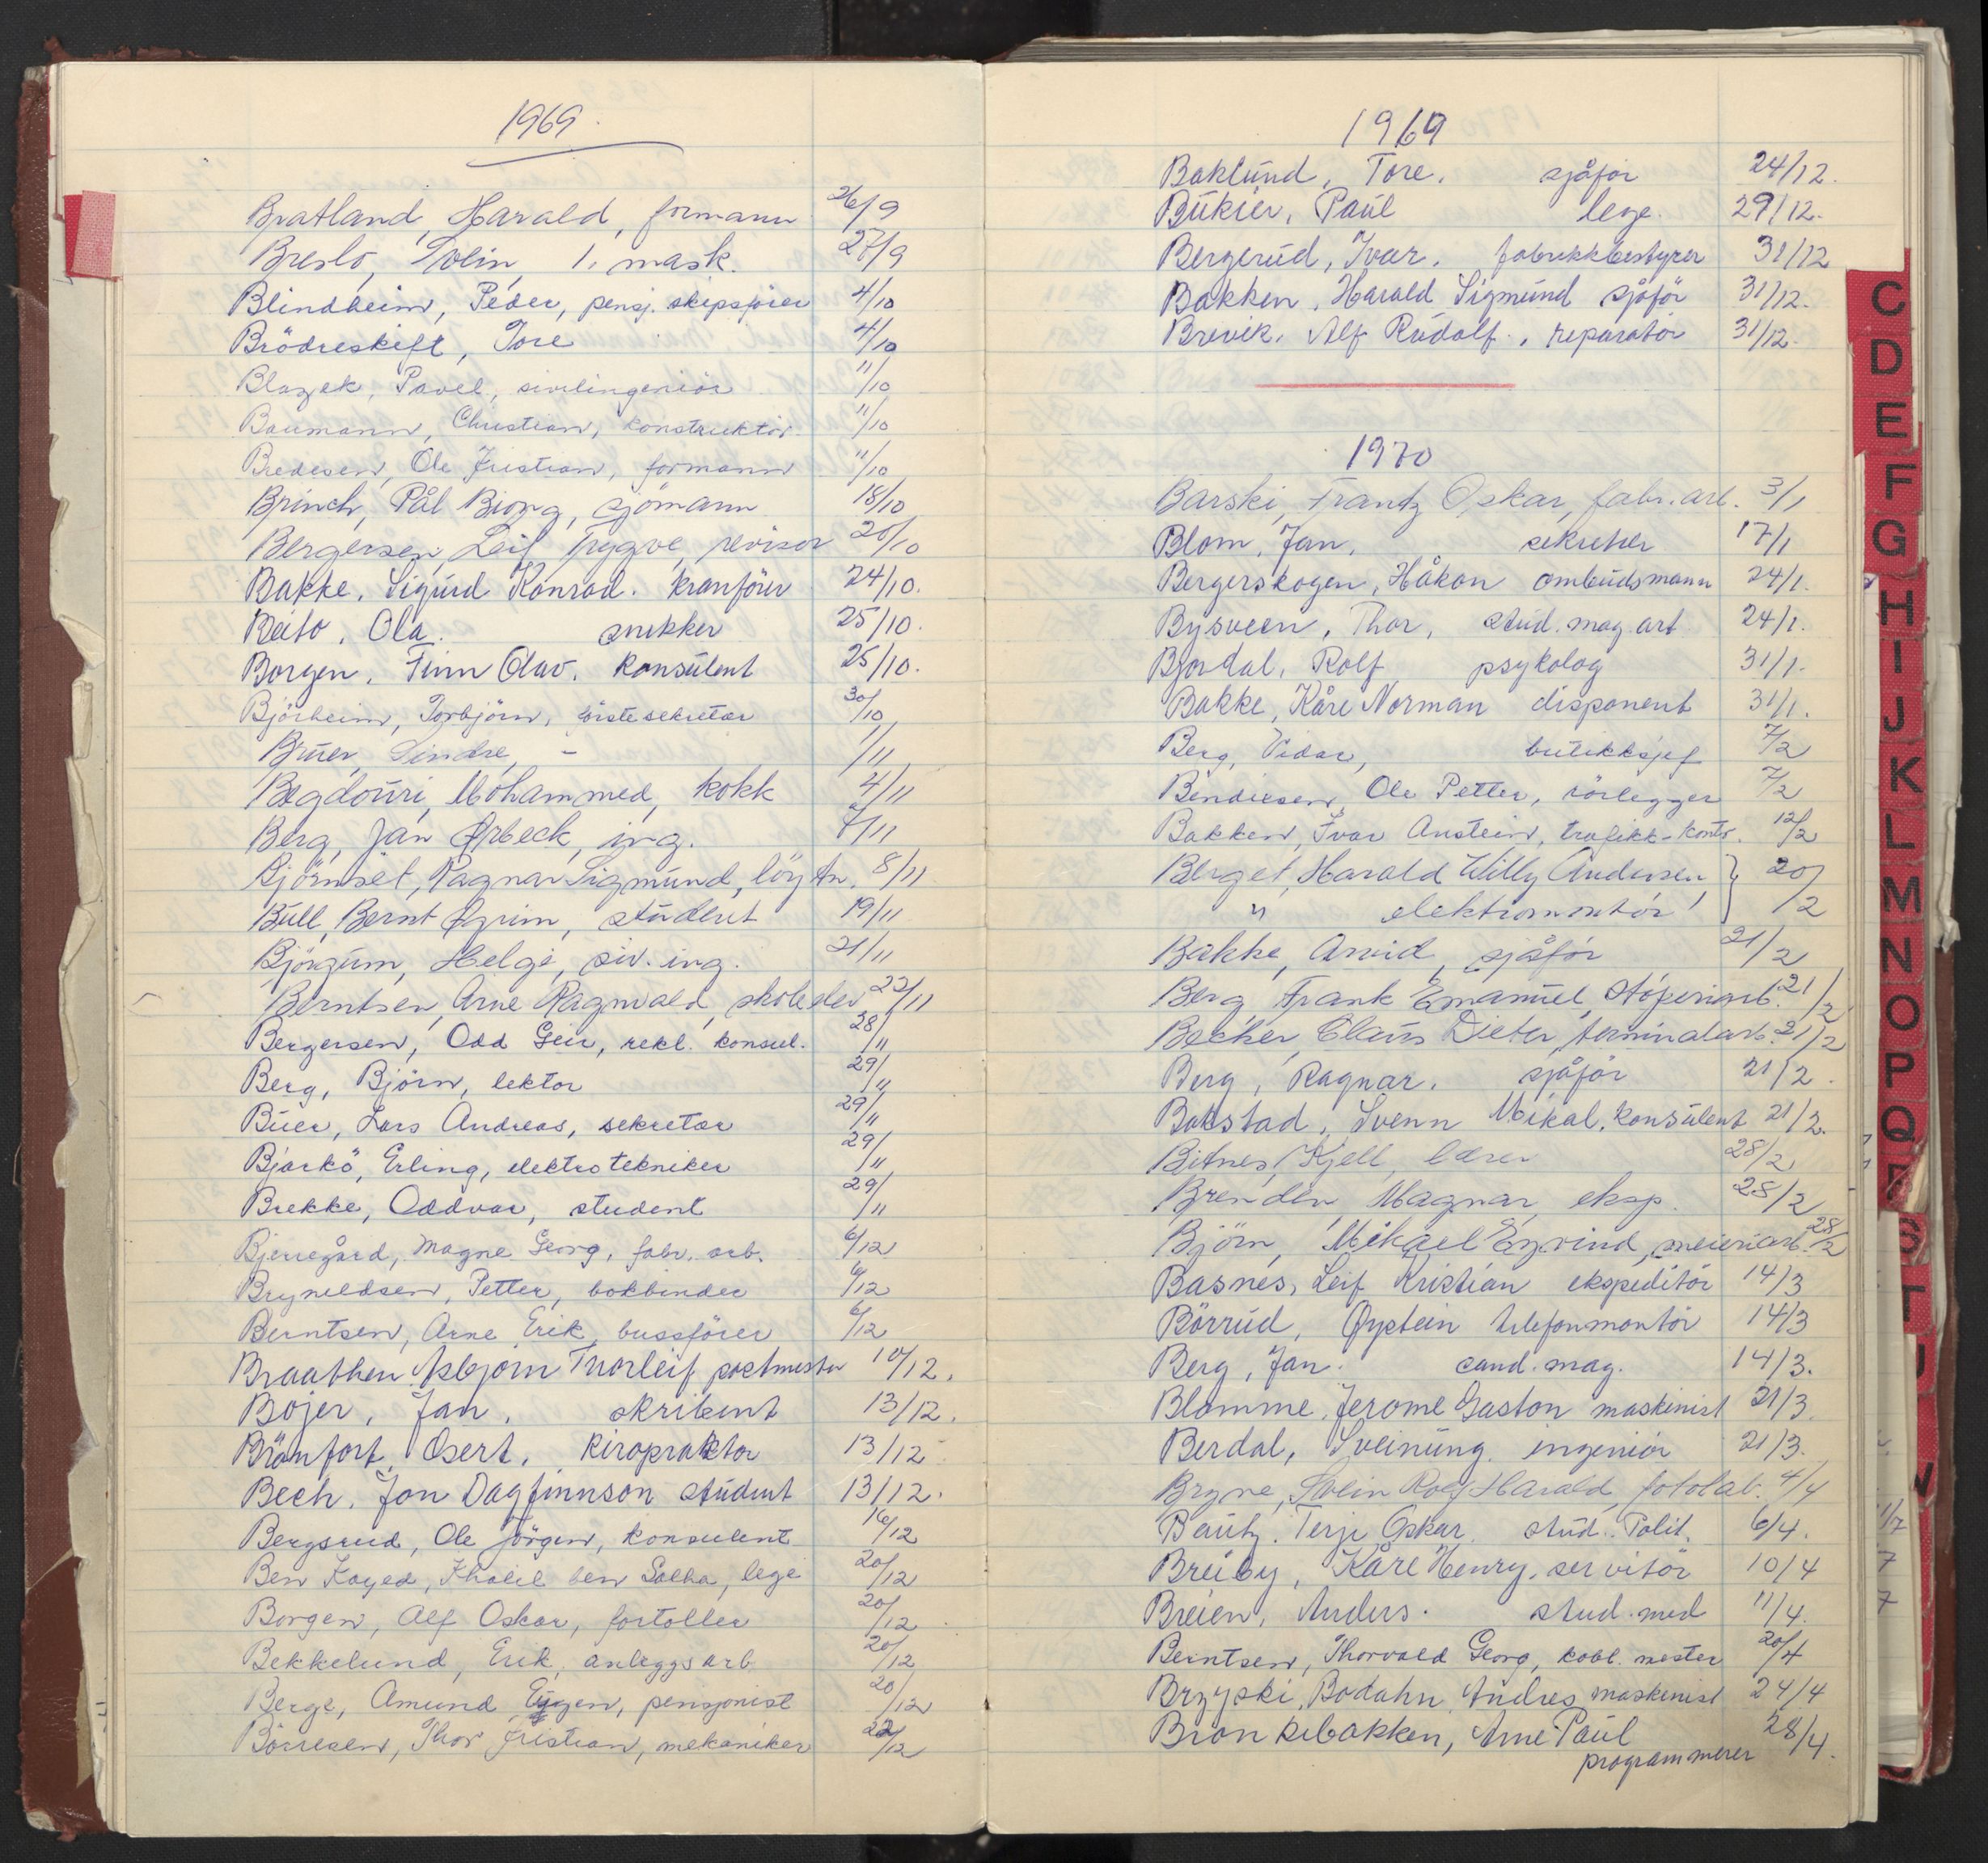 1969.
Bratland, Harald, formann 26/9
Breslo, Svein, 1. mask. 27/9
Blindheim, Peder, pensj. skipsfører 4/10
Brödreskift, Tore 4/10
Blazek, Pavel, sivilingeniör 11/10
Baumann, Christian, konstruktör 11/10
Bredesen, Ole Kristian, formann 11/10
Brinch, Pål Biong, sjömann 18/10
Bergersen, Leif Trygve, revisor 20/10
Bakke, Sigurd Konrad. kranförer 24/10.
Beito, Ola. snekker 25/10.
Borgen, Finn Olav. konsulent 25/10.
Björheim, Torbjörn, förstesekretær 30/10
Bruer, Sindre, - 1/11
Begdouri, Mohammed, kokk 4/11
Berg, Jan Ørbeck, ing. 7/11
Björnset, Ragnar Sigmund, löytn. 8/11
Bull, Bernt Ogrim, student 19/11
Björgum, Helge, siv. ing. 21/11
Berntsen, Arne Ragnvald, skoleelev 22/11
Bergersen, Odd Geir, rekl. konsul. 28/11
Berg, Björn, lektor 29/11
Buer, Lars Andreas, sekretær 29/11
Bjarkö, Erling, elektrotekniker 29/11
Brekke, Oddvar, student 29/11
Bjerregård, Magne Georg, fabr. arb. 6/12
Bryneldsen, Petter, bokbinder 6/12
Berntsen, Arne Erik, bussförer 6/12
Braathen Asbjörn Thorleif postmester 10/12.
Bojer, Jan. skribent 13/12.
Brönfort, Osert. kiropraktor 13/12
Bech, Jon Dagfinnson student 13/12.
Bergsrud, Ole Jörgen, konsulent 16/12
Ben Zayed, Khalil ben Salha, lege 20/12
Borgen, Alf Oskar, fortoller 20/12
Bekkelund, Erik, anleggsarb. 20/12
Berge, Amund Eggen, pensjonist 20/12
Börresen, Thor Kristian, mekaniker 22/12
1969
Baklund, Tore. sjåför 24/12.
Bukier, Paul lege. 29/12.
Bergerud, Ivar. fabrikkbestyrer 31/12
Bakken, Harald Sigmund sjåför 31/12.
Brevik, Alf Rudolf., reparatör 31/12.
1970
Barski, Frantz Oskar, fabr.arb. 3/1
Blom, Jan, sekretær 17/1
Bergerskogen, Håkon ombudsmann 24/1.
Bysveen, Thor, stud. mag. art 24/1.
Bjordal, Rolf psykolog 31/1.
Bakke, Kåre Norman disponent 31/1.
Berg, Vidar, butikksjef 7/2
Bendiksen, Ole Petter, rörlegger 7/2
Bakken, Ivar Anstein, trafikk-kontr. 12/2
Berget, Harald Willy Andersen, } 20/2
" elektromontör
Bakke, Arvid, sjåför 21/2
Berg, Frank Emanuel, støperiarb. 21/2
Becker, Claus Dieter, terminalarb. 21/2
Berg, Ragnar. sjåför 21/2.
Bakstad, Svenn Mikal. konsulent 21/2.
Bitnes, Kjell, lærer 28/2
Brenden, Magnar, eksp. 28/2
Björn, Mikael Eyvind, meieriarb. 28/2
Basnes, Leif Kristian ekspeditör 14/3
Börrud, Øystein telefonmontör 14/3
Berg, Jan. cand. mag. 14/3.
Blomme, Jerome Gaston maskinist 21/3.
Berdal, Sveinung. ingeniör 21/3.
Bryne, Svein Rolf Harald, fotolab. 4/4
Bautz. Terje Oskar. stud. Polit. 6/4.
Breiby, Kåre Henry. servitör 10/4
Breien, Anders. stud. med 11/4.
Berntsen, Thorvald Georg, kobl. mester 20/4
Brzyski, Bodahn, Andres maskinist 24/4
Bronkebakken, Arne Paul 28/4.
programmerer
C
D
E
F
G
H
I
J
K
L
M
N
O
P
Q
S
T